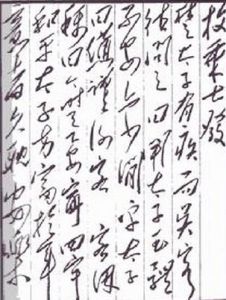 枚乘七發
楚太子有疾而吴客
往问之曰伏闻太子玉體
不安亦少间乎太子
曰憊謹谢客客因
稱曰今时天下安寧四宇
和平太子方富於年
意者久耽安樂